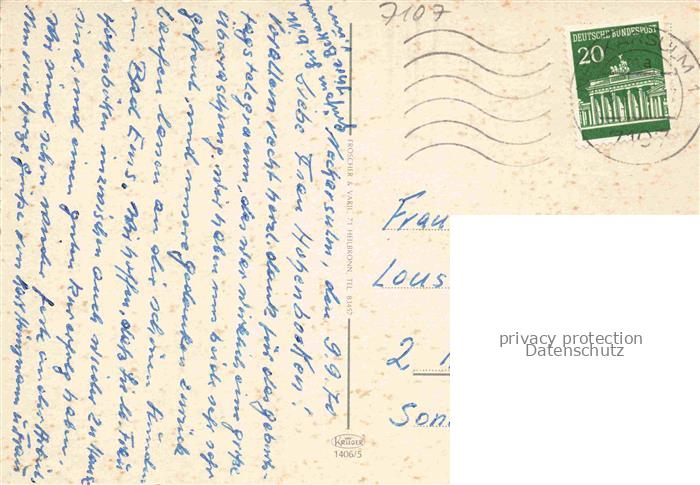 7107
DEUTSCHE BUNDESPOST
20
7107
Neckarsulm, den 9.9.70
Liebe Frau Hohenbocken!
Vor allem recht herzl. dank für das Geburts-
tagstelegramm, das war wirklich eine große
überraschung. Wir haben uns beide sehr sehr
gefreut, und unsere gedanken zurück
laufen lassen an die schönen Stunden
in Bad Ems. Wir hoffen, daß Sie lb. Frau
Hohenbocken inzwischen auch wieder zu Hause
sind und einen guten Kurerfolg haben.
Wir sind schon wieder fest in der Arbeit.
Nun recht herzl. Grüße
FROSCHER & VARIL 71 HEILBRONN TEL. 83462
KRÜGER
1406/5
Frau
Lous
2
Son
privacy protection
Datenschutz